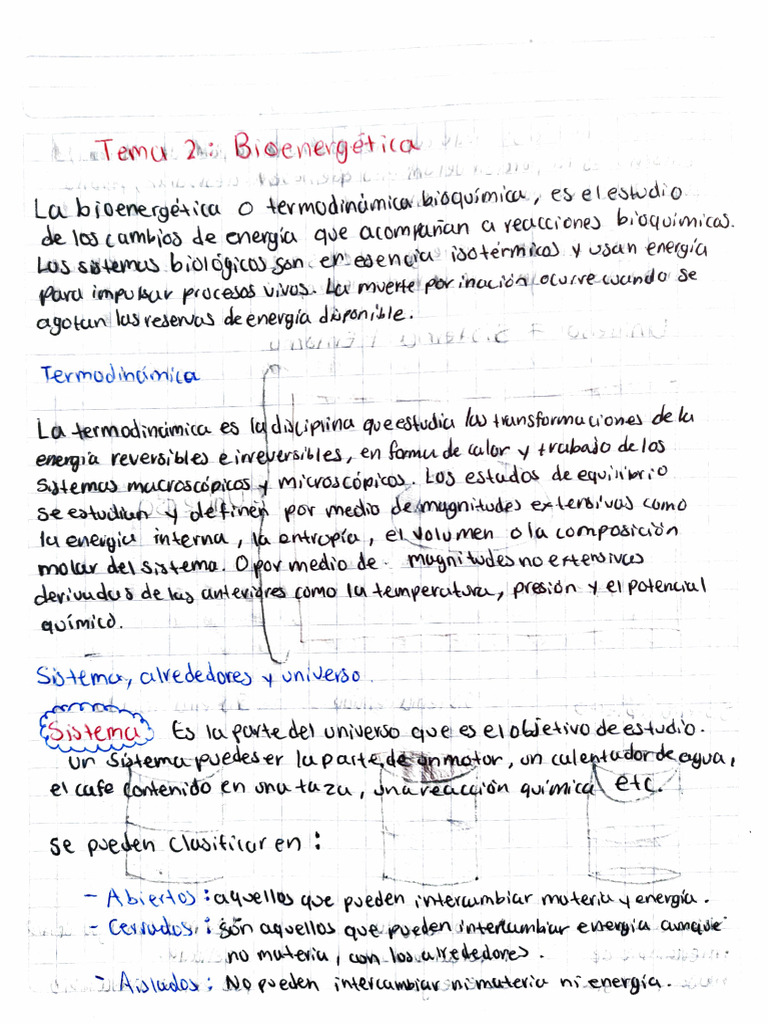 Tema 2: Bioenergética
La bioenergética o termodinámica bioquímica, es el estudio
de los cambios de energía que acompañan a reacciones bioquímicas.
Los sistemas biológicos son en esencia isotérmicos y usan energía
para impulsar procesos vivos. La muerte por inación ocurre cuando se
agotan las reservas de energía disponible.
Termodinámica
La termodinámica es la disciplina que estudia las transformaciones de la
energía reversibles e irreversibles, en forma de calor y trabajo de los
sistemas macroscópicos y microscópicos. Los estados de equilibrio
se estudian y definen por medio de magnitudes extensivas como
la energía interna, la entropía, el volumen o la composición
molar del sistema. O por medio de magnitudes no extensivas
derivadas de las anteriores como la temperatura, presión y el potencial
químico.
Sistema, alrededores y universo.
Sistema Es la parte del universo que es el objetivo de estudio.
Un sistema puede ser la parte de un motor, un calentador de agua,
el cafe contenido en una taza, una reacción química etc.
Se pueden clasificar en:
- Abiertos: aquellos que pueden intercambiar materia y energía.
- Cerrados: son aquellos que pueden intercambiar energía aunque
no materia, con los alrededores.
- Aislados: No pueden intercambiar ni materia ni energía.